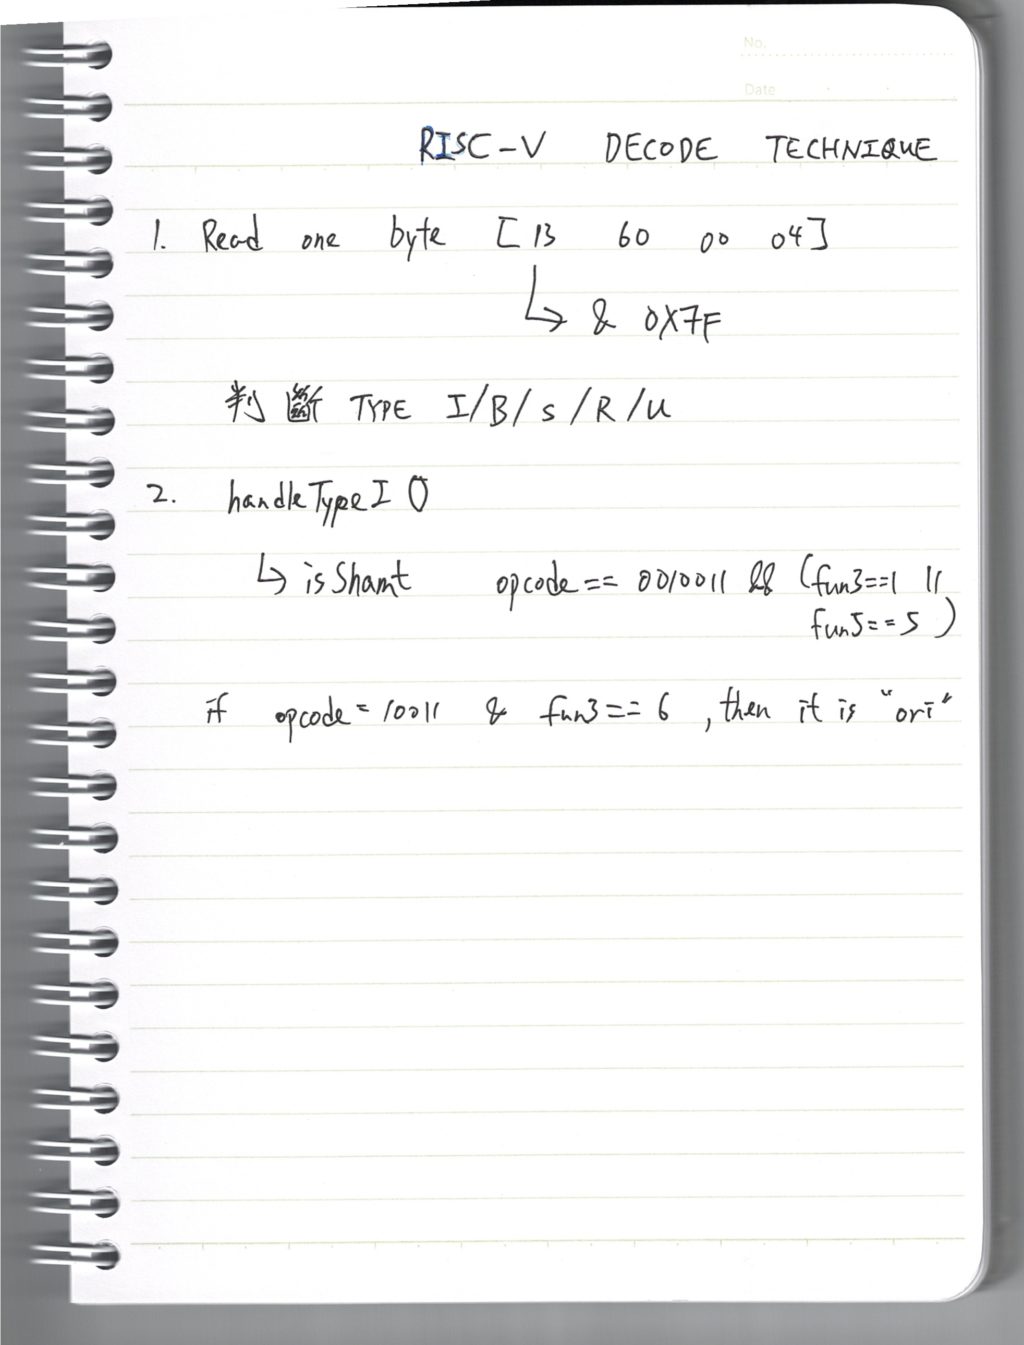 No.
Date
RISC-V DECODE TECHNIQUE
1. Read one byte [ 13 60 00 04 ]
↳ & 0X7F
判斷 TYPE I/B/S/R/U
2. handleTypeI ()
↳ isShamt opcode == 0010011 && (fun3==1 ||
fun5==5 )
if opcode = 10011 & fun3 == 6 , then it is "ori"